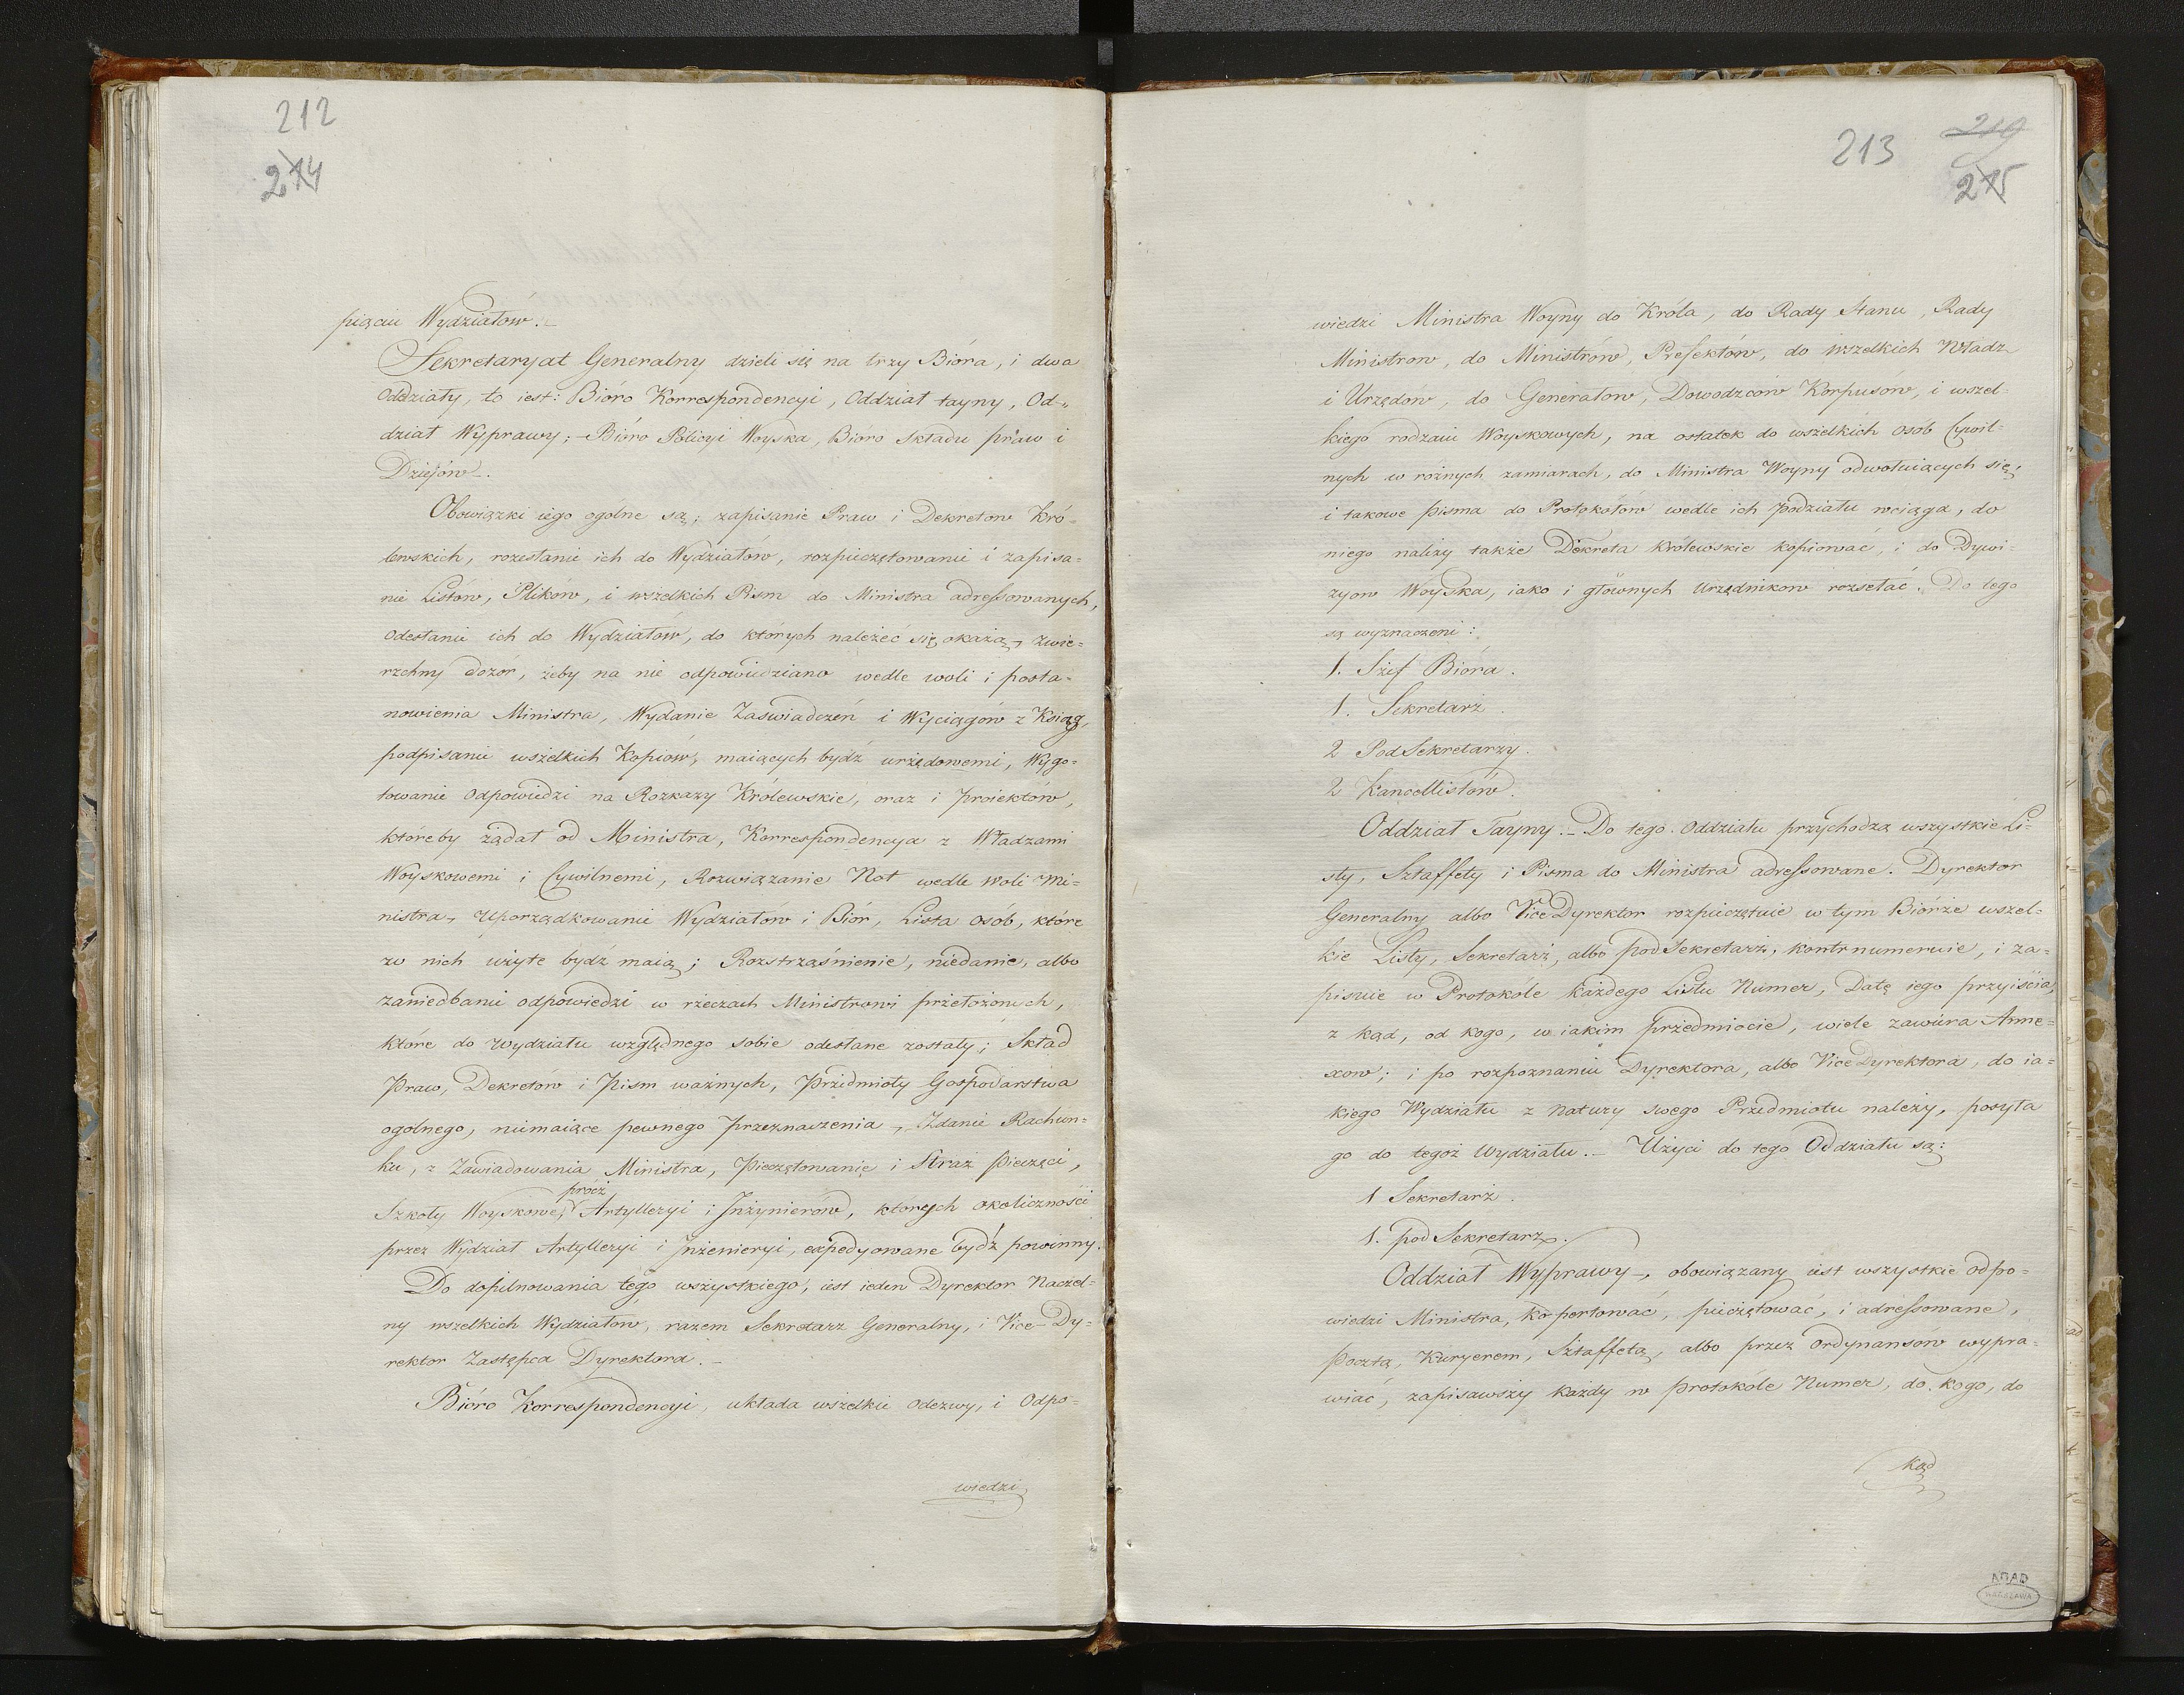 212
214
pięciu Wydziałów._
Sekretaryat Generalny dzieli się na trzy Bióra, i dwa
Oddziały, to iest: Bióro Korrespondencyi, Oddział tayny, Od=
dział Wyprawy; Bióro Policyi Woyska, Bióro Składu praw i
Dziejów_.
Obowiązki iego ogólne są; zapisanie Praw i Dekretow Kró=
lewskich, rozesłanie ich do Wydziałów, rozpieczętowanie i zapisa=
nie Listów, Plików, i wszelkich Pism do Ministra adressowanych,
odesłanie ich do Wydziałów, do których należeć się okażą, zwie=
rzchny dozór, żeby na nie odpowiedziano wedle woli i posta=
nowienia Ministra, Wydanie Zaświadczeń i Wyciągów z Ksiąg,
podpisanie wszelkich Kopiow, maiących bydź urzędowemi, Wygo=
towanie odpowiedzi na Rozkazy Królewskie, oraz i proiektów,
któreby żądał od Ministra, Korrespondencya z Władzami
Woyskowemi i Cywilnemi, Rozwiązanie Not wedle woli Mi=
nistra, Uporządkowanie Wydziałów i Biór, Lista osób, które
w nich użyte bydź maią; Rozstrząśnienie, niedanie, albo
zaniedbanie odpowiedzi w rzeczach Ministrowi przełożonych,
które do Wydziału względnego sobie odesłane zostały; Skład
Praw, Dekretów i Pism ważnych, Przedmioty Gospodarstwa
ogólnego, niemaiące pewnego przeznaczenia, Zdanie Rachun=
ku, z Zawiadowania Ministra, Pieczętowanie i Straż pieczęci,
prócz
Szkoły Woyskowe, Artylleryi i Jnżynierów, których okoliczności
przez Wydział Artylleryi i Jnżenieryi, expedyowane bydź powinny.
Do dopilnowania tego wszystkiego, iest ieden Dyrektor Naczel=
ny wszelkich Wydziałow, razem Sekretarz Generalny, i Vice-Dy=
rektor Zastępca Dyrektora._
Bióro Korrespondencyi, układa wszelkie odezwy, i Odpo=
wiedzi
213
219
215
wiedzi Ministra Woyny do Króla, do Rady Stanu, Rady
Ministrow, do Ministrów, Prefektów, do wszelkich Władz
i Urzędów, do Generałow, Dowodzców Korpusów, i wszel=
kiego rodzaiu Woyskowych, na ostatek do wszelkich osób Cywil=
nych w rożnych zamiarach, do Ministra Woyny odwołuiących się,
i takowe pisma do Protokółów wedle ich podziału wciąga, do
niego należy także Dekreta Królewskie kopiować, i do Dywi=
zyow Woyska, iako i głównych Urzędnikow rozsełać. Do tego
są wyznaczeni:
1. Szef Bióra.
1. Sekretarz.
2 PodSekretarzy.
2 Kancellistów.
Oddział Tayny._ Do tego Oddziału przychodzą wszystkie Li=
sty, Sztaffety i Pisma do Ministra adressowane. Dyrektor
Generalny albo ViceDyrektor rozpieczętuie w tym Biórze wszel=
kie Listy, Sekretarz, albo podSekretarz, kontrnumeruie, i za=
pisuie w Protokóle każdego Listu Numer, Datę iego przyiścia,
z kąd, od kogo, w iakim przedmiocie, wiele zawiera Anne=
xow; i po rozpoznaniu Dyrektora, albo ViceDyrektora, do ia=
kiego Wydziału z Natury swego Przedmiotu należy, posyła
go do tegoż Wydziału._ Użyci do tego Oddziału są:
1 Sekretarz.
1. podSekretarz.
Oddział Wyprawy_, obowiązany iest wszystkie odpo=
wiedzi Ministra, kopertować, pieczętować, i adressowane,
Pocztą, Kuryerem, Sztaffetą, albo przez Ordynansów wypra=
wiać, zapisawszy każdy w protokole Numer, do kogo, do
kąd
AGAD
WARSZAWA